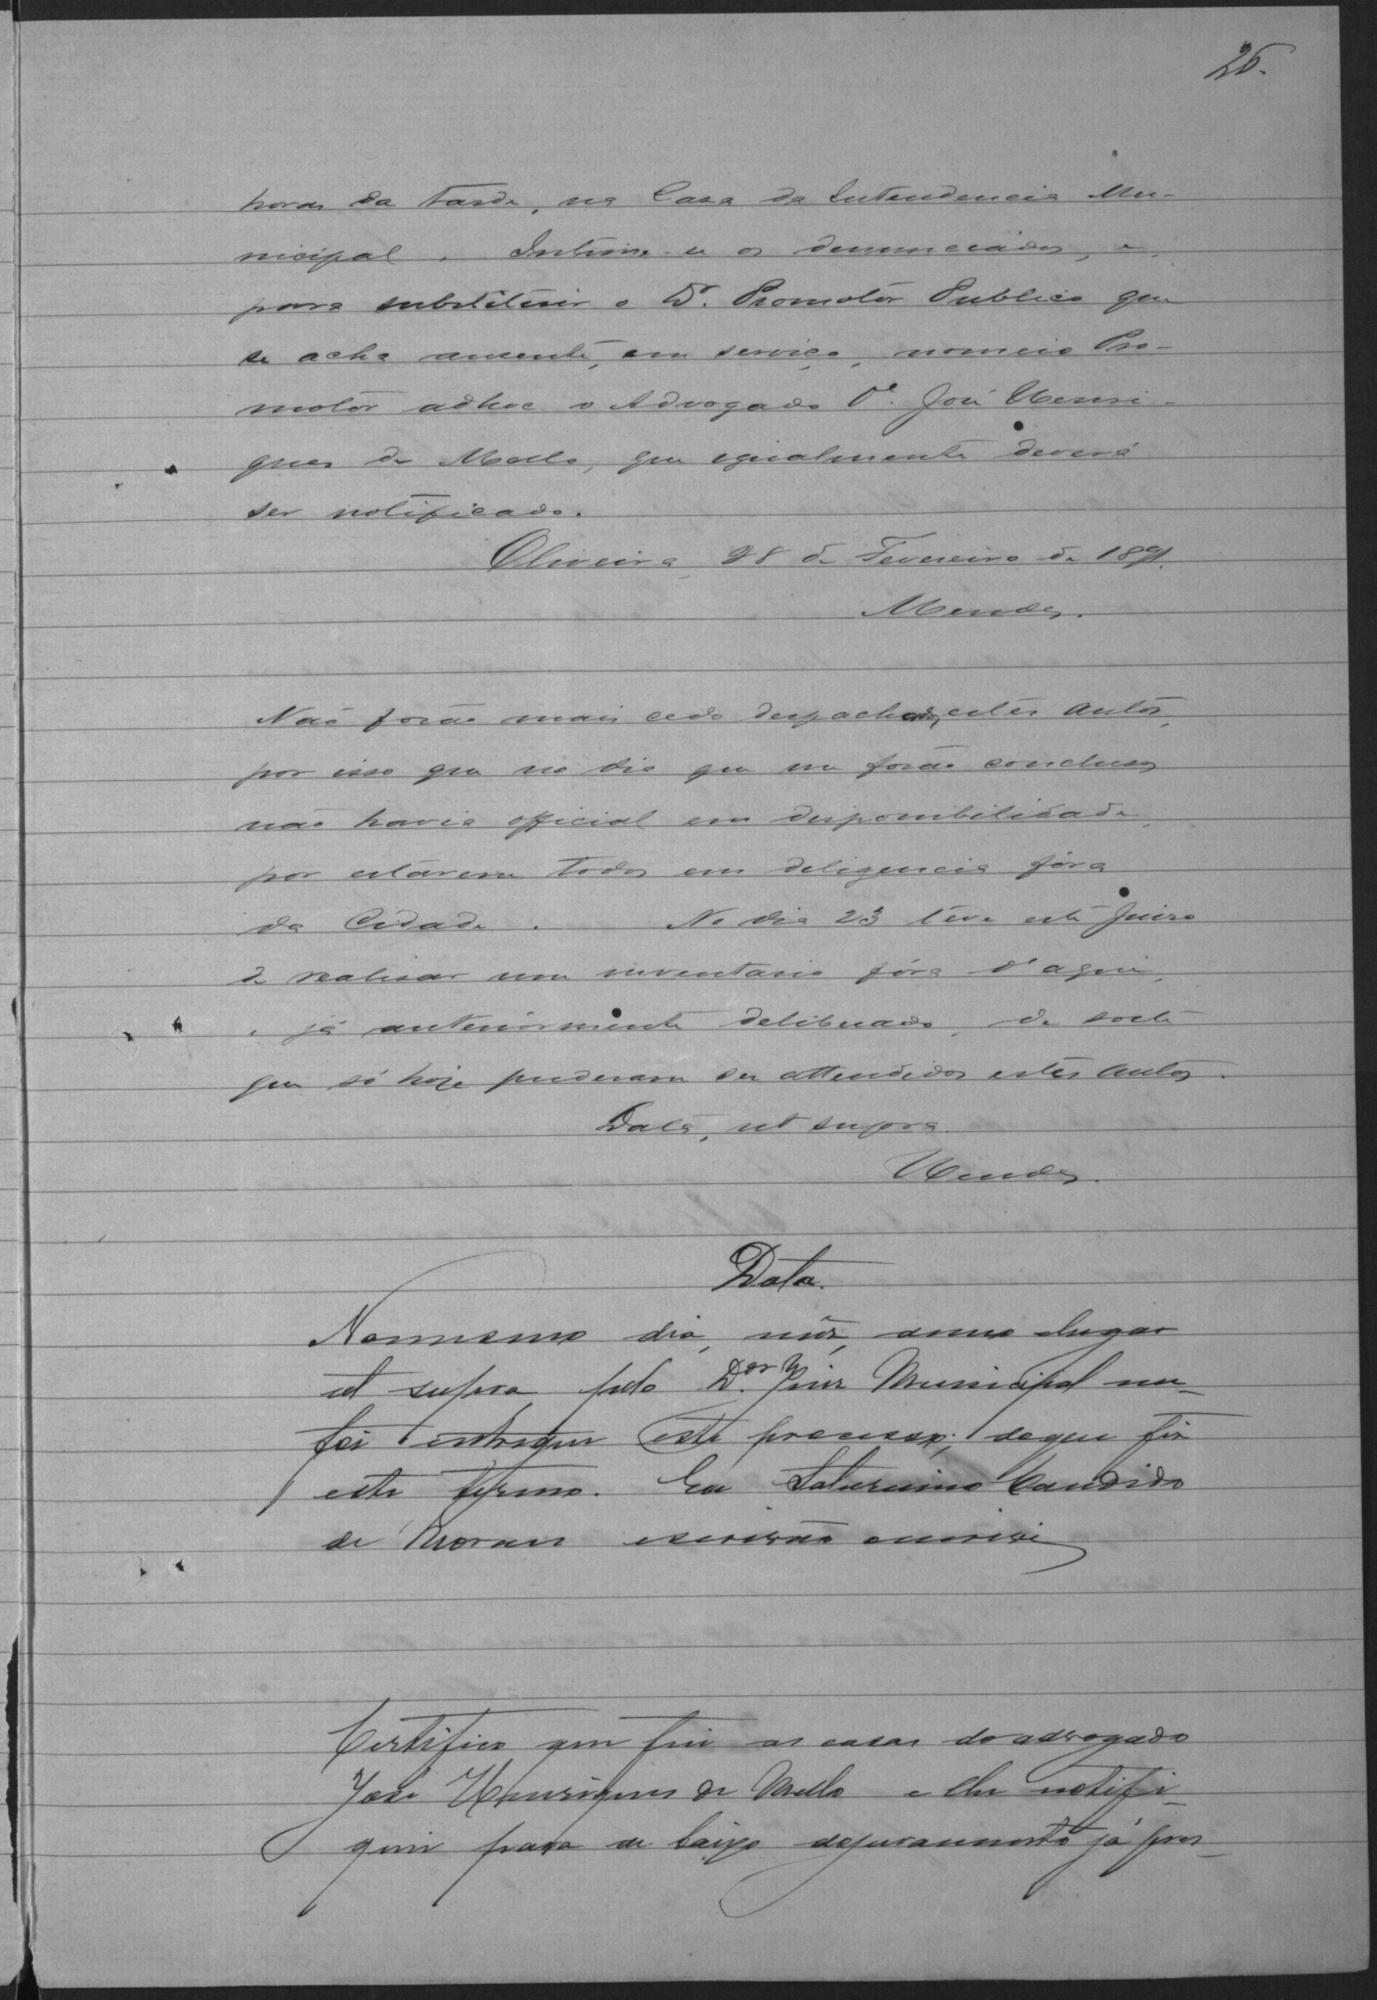 26.
horas da tarde, na Casa da Intendencia Mu-
nicipal. Intime-se os denunciados, e,
para substituir o Dr. Promotor Publico que
se acha ausente, em serviço, nomeio Pro-
motor adhoc o Advogado Dr. José Henri-
ques de Mello, que egualmente deverá
ser notificado.
Oliveira 28 de Fevereiro de 1891.
Mendes.
Não forão mais cedo despachados estes autos,
por isso que no dia que me forão conclusos
não havia official em disponibilidade,
por estarem todos em deligencia fóra
da Cidade. No dia 23 teve este Juizo
de realisar um inventario fóra d'aqui,
e já anteriormente deliberado, de sorte
que só hoje puderam ser attendidos estes autos.
Data, ut supra.
Mendes.
Data.
Nomesmo dia, mêz, anno elugar
ut supra pelo Dor. Juiz Municipal me
foi entregue este processo; doque fiz
este termo. Eu Saturnino Candido
de Moraes escrivão escrivi
Certifico que fui as casas do advogado
José Henriques de Mello e lhe notifi-
quei para de baixo dejuramento já pres-